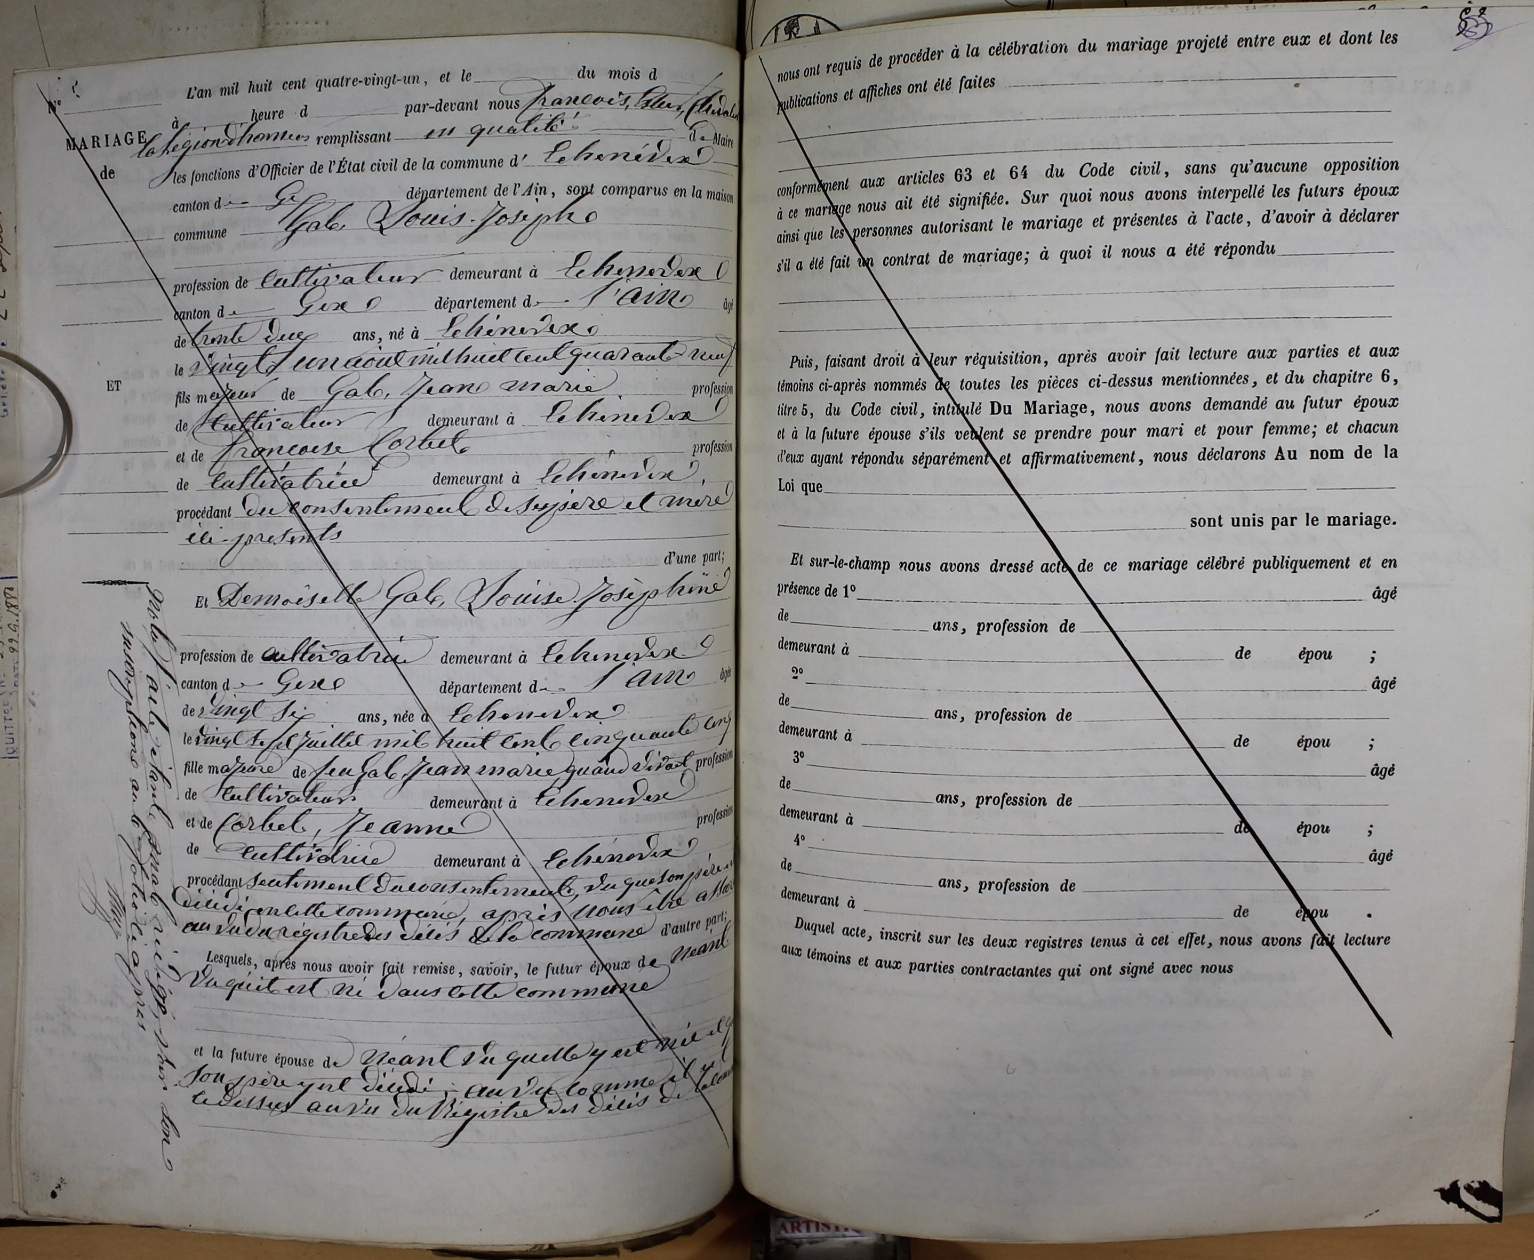 L'an mil huit cent quatre-vingt-un, et le du mois d
N°
à heure d par-devant nous françois,
MARIAGE
la Légion d'honneur remplissant en qualité de Maire
de
les fonctions d'Officier de l'État civil de la commune d' Echenévex
canton d Gex département de l'Ain, sont comparus en la maison
commune Gab Louis-Joseph
profession de Cultivateur demeurant à Echenevex
canton de Gex département de l'ain âgé
de trente deux ans, né à Echénevex
le vingt un aout mil huit cent quarante neuf
ET
fils majeur de Gab, Jean marie profession
de Cultivateur demeurant à Echénevex
et de françoise Corbet profession
de Cultivatrice demeurant à Echénevex
procédant du consentement de ses père et mère
ici présents
d'une part;
Et Demoiselle Gab, Louise Joséphine
profession de cultivatrice demeurant à Echenevex
canton de Gex département de l'ain âgée
de vingt six ans, née à Echenevex
le vingt juillet mil huit cent cinquante cinq
fille majeure de feu Gab Jean marie, quand vivait profession
de Cultivateur demeurant à Echenevex
et de Corbet, Jeanne profession
de Cultivatrice demeurant à Echénevex
procédant seulement du consentement, vu que son père
décédé en cette commune, après nous être
au vu du registre des décès de la commune d'autre part;
Lesquels, après nous avoir fait remise, savoir, le futur époux de Néant
Vu qu'il est né dans cette commune
et la future épouse de Néant vu quelle y est née et q
son père y est décédé, au vu comme il
ci dessus au vu du Régistre des décès de
acte étant
nous ont requis de procéder à la célébration du mariage projeté entre eux et dont les
publications et affiches ont été faites
conformément aux articles 63 et 64 du Code civil, sans qu'aucune opposition
à ce mariage nous ait été signifiée. Sur quoi nous avons interpellé les futurs époux
ainsi que les personnes autorisant le mariage et présentes à l'acte, d'avoir à déclarer
s'il a été fait un contrat de mariage; à quoi il nous a été répondu
Puis, faisant droit à leur réquisition, après avoir fait lecture aux parties et aux
témoins ci-après nommés de toutes les pièces ci-dessus mentionnées, et du chapitre 6,
titre 5, du Code civil, intitulé Du Mariage, nous avons demandé au futur époux
et à la future épouse s'ils veulent se prendre pour mari et pour femme; et chacun
d'eux ayant répondu séparément et affirmativement, nous déclarons Au nom de la
Loi que
sont unis par le mariage.
Et sur-le-champ nous avons dressé acte de ce mariage célébré publiquement et en
présence de 1° âgé
de ans, profession de
demeurant à de épou ;
2° âgé
de ans, profession de
demeurant à de épou ;
3° âgé
de ans, profession de
demeurant à de épou ;
4° âgé
de ans, profession de
demeurant à de épou .
Duquel acte, inscrit sur les deux registres tenus à cet effet, nous avons fait lecture
aux témoins et aux parties contractantes qui ont signé avec nous
ARTIST